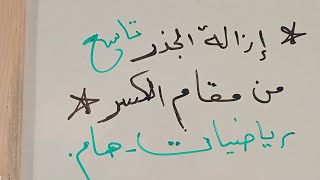 * إزالة الجذر تاسع
من مقام الكسر *
رياضيات - هام.